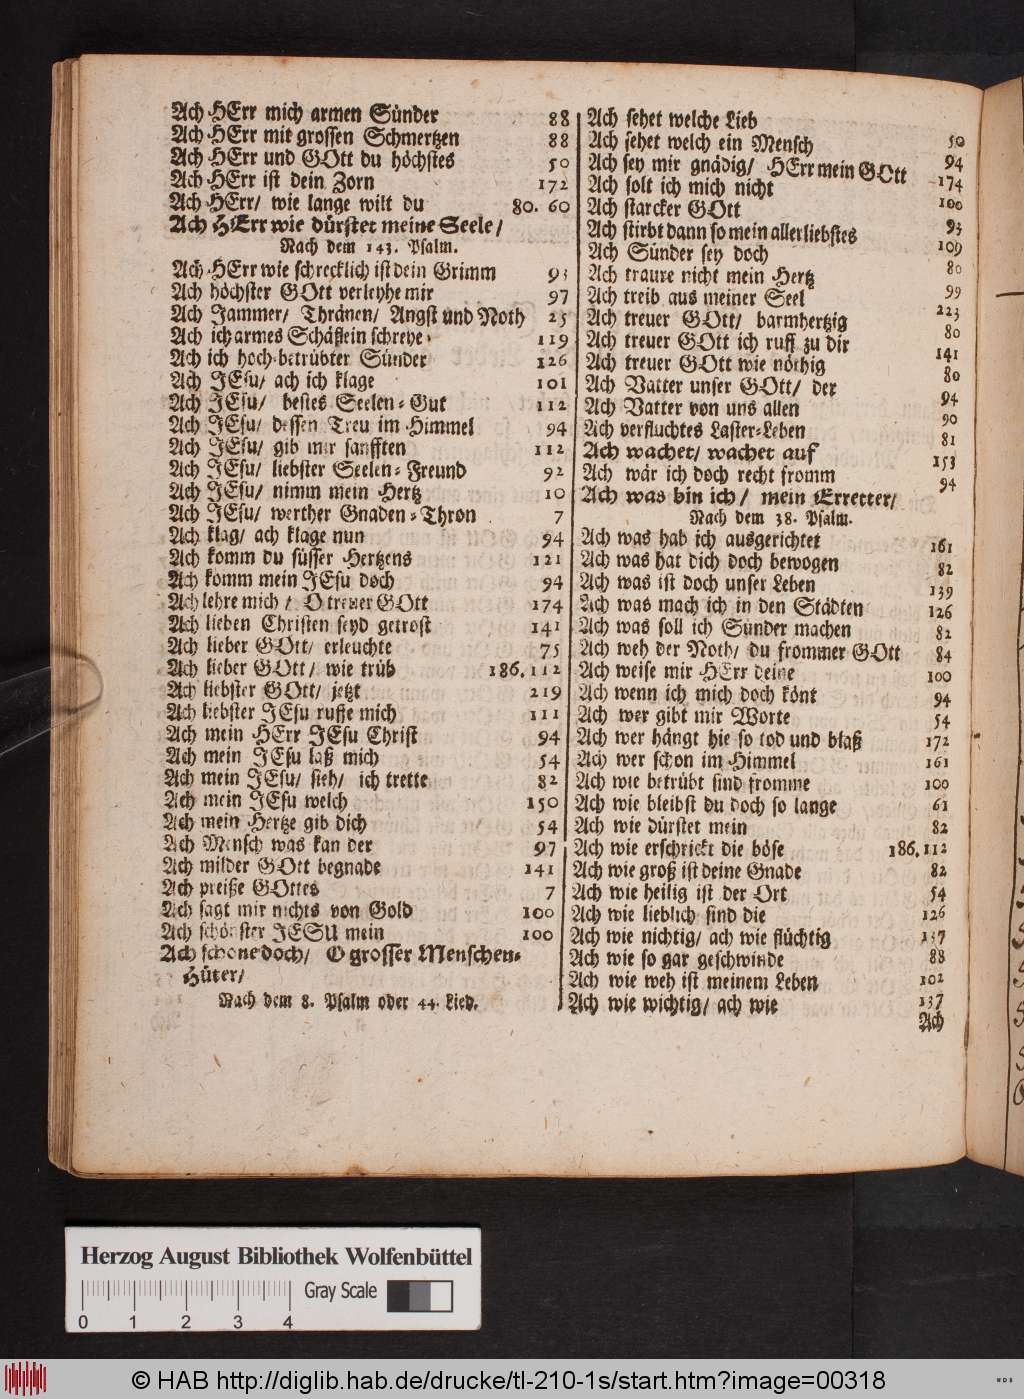 Ach HErr mich armen Sünder 88
Ach HErr mit grossen Schmertzen 88
Ach HErr und GOtt du höchstes 50
Ach HErr ist dein Zorn 172
Ach HErr/ wie lange wilt du 80. 60
Ach HErr wie dürstet meine Seele/
Nach dem 143. Psalm.
Ach HErr wie schrecklich ist dein Grimm 93
Ach höchster GOtt verleyhe mir 97
Ach Jammer/ Thränen/ Angst und Noth 25
Ach ich armes Schäflein schreye 119
Ach ich hoch-betrübter Sünder 126
Ach JEsu/ ach ich klage 101
Ach JEsu/ bestes Seelen-Gut 112
Ach JEsu/ dessen Treu im Himmel 94
Ach JEsu/ gib mir sanfften 112
Ach JEsu/ liebster Seelen-Freund 92
Ach JEsu/ nimm mein Hertz 10
Ach JEsu/ werther Gnaden-Thron 7
Ach klag/ ach klage nun 94
Ach komm du süsser Hertzens 121
Ach komm mein JEsu doch 94
Ach lehre mich/ O treuer GOtt 174
Ach lieben Christen seyd getrost 141
Ach lieber GOtt/ erleuchte 75
Ach lieber GOtt/ wie trüb 186. 112
Ach liebster GOtt/ jetzt 219
Ach liebster JEsu ruffe mich 111
Ach mein HErr JEsu Christ 94
Ach mein JEsu laß mich 54
Ach mein JEsu/ sieh/ ich trette 82
Ach mein JEsu welch 150
Ach mein Hertze gib dich 54
Ach Mensch was kan der 97
Ach milder GOtt begnade 141
Ach preiße GOttes 7
Ach sagt mir nichts von Gold 100
Ach schönster JESU mein 100
Ach schone doch/ O grosser Menschen-
Hüter/
Nach dem 8. Psalm oder 44. Lied.
Ach sehet welche Lieb
Ach sehet welch ein Mensch 50
Ach sey mir gnädig/ HErr mein GOtt 94
Ach solt ich mich nicht 174
Ach starcker GOtt 100
Ach stirbt dann so mein allerliebstes 93
Ach Sünder sey doch 109
Ach traure nicht mein Hertz 80
Ach treib aus meiner Seel 99
Ach treuer GOtt/ barmhertzig 223
Ach treuer GOtt ich ruff zu dir 80
Ach treuer GOtt wie nöthig 141
Ach Vatter unser GOtt/ der 80
Ach Vatter von uns allen 94
Ach verfluchtes Laster-Leben 90
Ach wachet/ wachet auf 81
Ach wär ich doch recht fromm 153
Ach was bin ich/ mein Erretter/ 94
Nach dem 38. Psalm.
Ach was hab ich ausgerichtet 161
Ach was hat dich doch bewogen 82
Ach was ist doch unser Leben 139
Ach was mach ich in den Städten 126
Ach was soll ich Sünder machen 82
Ach weh der Noth/ du frommer GOtt 84
Ach weise mir HErr deine 100
Ach wenn ich mich doch könt 94
Ach wer gibt mir Worte 54
Ach wer hängt hie so tod und blaß 172
Ach wer schon im Himmel 161
Ach wie betrübt sind fromme 100
Ach wie bleibst du doch so lange 61
Ach wie dürstet mein 82
Ach wie erschrickt die böse 186. 112
Ach wie groß ist deine Gnade 82
Ach wie heilig ist der Ort 54
Ach wie lieblich sind die 126
Ach wie nichtig/ ach wie flüchtig 137
Ach wie so gar geschwinde 88
Ach wie weh ist meinem Leben 102
Ach wie wichtig/ ach wie 137
Ach
Herzog August Bibliothek Wolfenbüttel
Gray Scale
0 1 2 3 4
© HAB http://diglib.hab.de/drucke/tl-210-1s/start.htm?image=00318